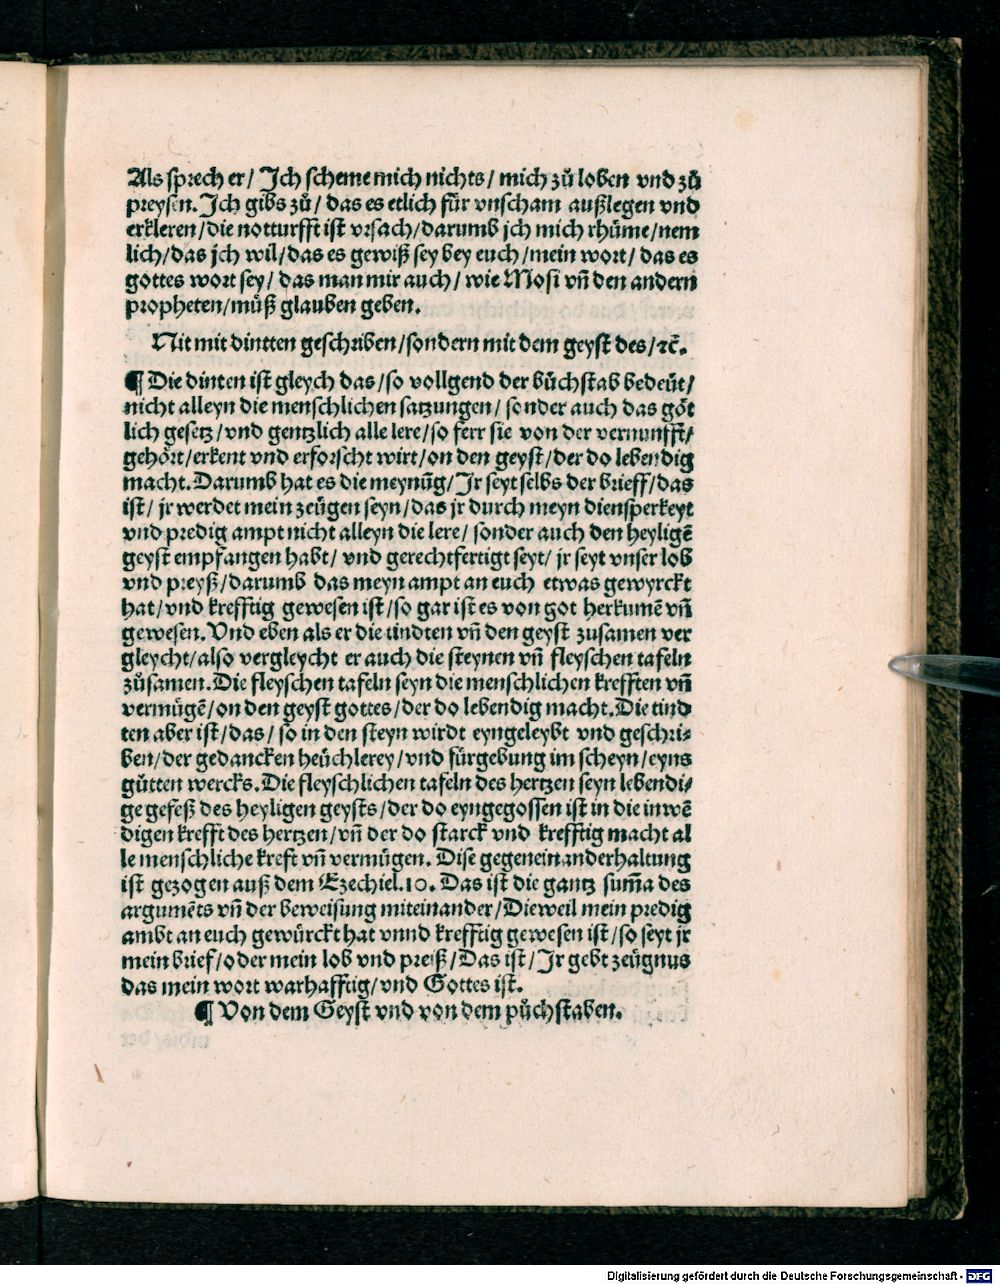 Als sprech er/ Ich scheme mich nichts/ mich zů loben vnd zů
preysen. Ich gibs zů/ das es etlich für vnscham außlegen vnd
erkleren/die notturfft ist vrsach/darumb jch mich rhüme/nem
lich/das jch wil/das es gewiß sey bey euch/mein wort/das es
gottes wort sey/ das man mir auch/ wie Mosi vñ den andern
propheten/můß glauben geben.
Nit mit dintten geschriben/sondern mit dem geyst des/ꝛc̃.
¶ Die dinten ist gleych das/so vollgend der bůchstab bedeüt/
nicht alleyn die menschlichen satzungen/ sonder auch das göt
lich gesetz/vnd gentzlich alle lere/so ferr sie von der vernunfft/
gehört/erkent vnd erforscht wirt/on den geyst/der do lebendig
macht. Darumb hat es die meynũg/Jr seyt selbs der brieff/das
ist/ jr werdet mein zeügen seyn/das jr durch meyn diensperkeyt
vnd predig ampt nicht alleyn die lere/ sonder auch den heyligẽ
geyst empfangen habt/ vnd gerechtfertigt seyt/ jr seyt vnser lob
vnd preyß/darumb das meyn ampt an euch etwas gewyrckt
hat/vnd krefftig gewesen ist/so gar ist es von got herkumẽ vñ
gewesen. Vnd eben als er die tindten vñ den geyst zusamen ver
gleycht/also vergleycht er auch die steynen vñ fleyschen tafeln
zůsamen. Die fleyschen tafeln seyn die menschlichen krefften vñ
vermügẽ/on den geyst gottes/der do lebendig macht. Die tind
ten aber ist/das/so in den steyn wirdt eyngeleybt vnd geschri⸗
ben/der gedancken heüchlerey/vnd fürgebung im scheyn/eyns
gůtten wercks. Die fleyschlichen tafeln des hertzen seyn lebendi⸗
ge gefeß des heyligen geysts/der do eyngegossen ist in die inwẽ
digen krefft des hertzen/vñ der do starck vnd krefftig macht al
le menschliche kreft vñ vermügen. Dise gegeneinanderhaltung
ist gezogen auß dem Ezechiel.10. Das ist die gantz sum̃a des
argumẽts vñ der beweisung miteinander/Dieweil mein predig
ambt an euch gewürckt hat vnnd krefftig gewesen ist/so seyt jr
mein brief/oder mein lob vnd preiß/Das ist/Jr gebt zeügnus
das mein wort warhafftig/vnd Gottes ist.
¶ Von dem Geyst vnd von dem půchstaben.
Digitalisierung gefördert durch die Deutsche Forschungsgemeinschaft - DFG